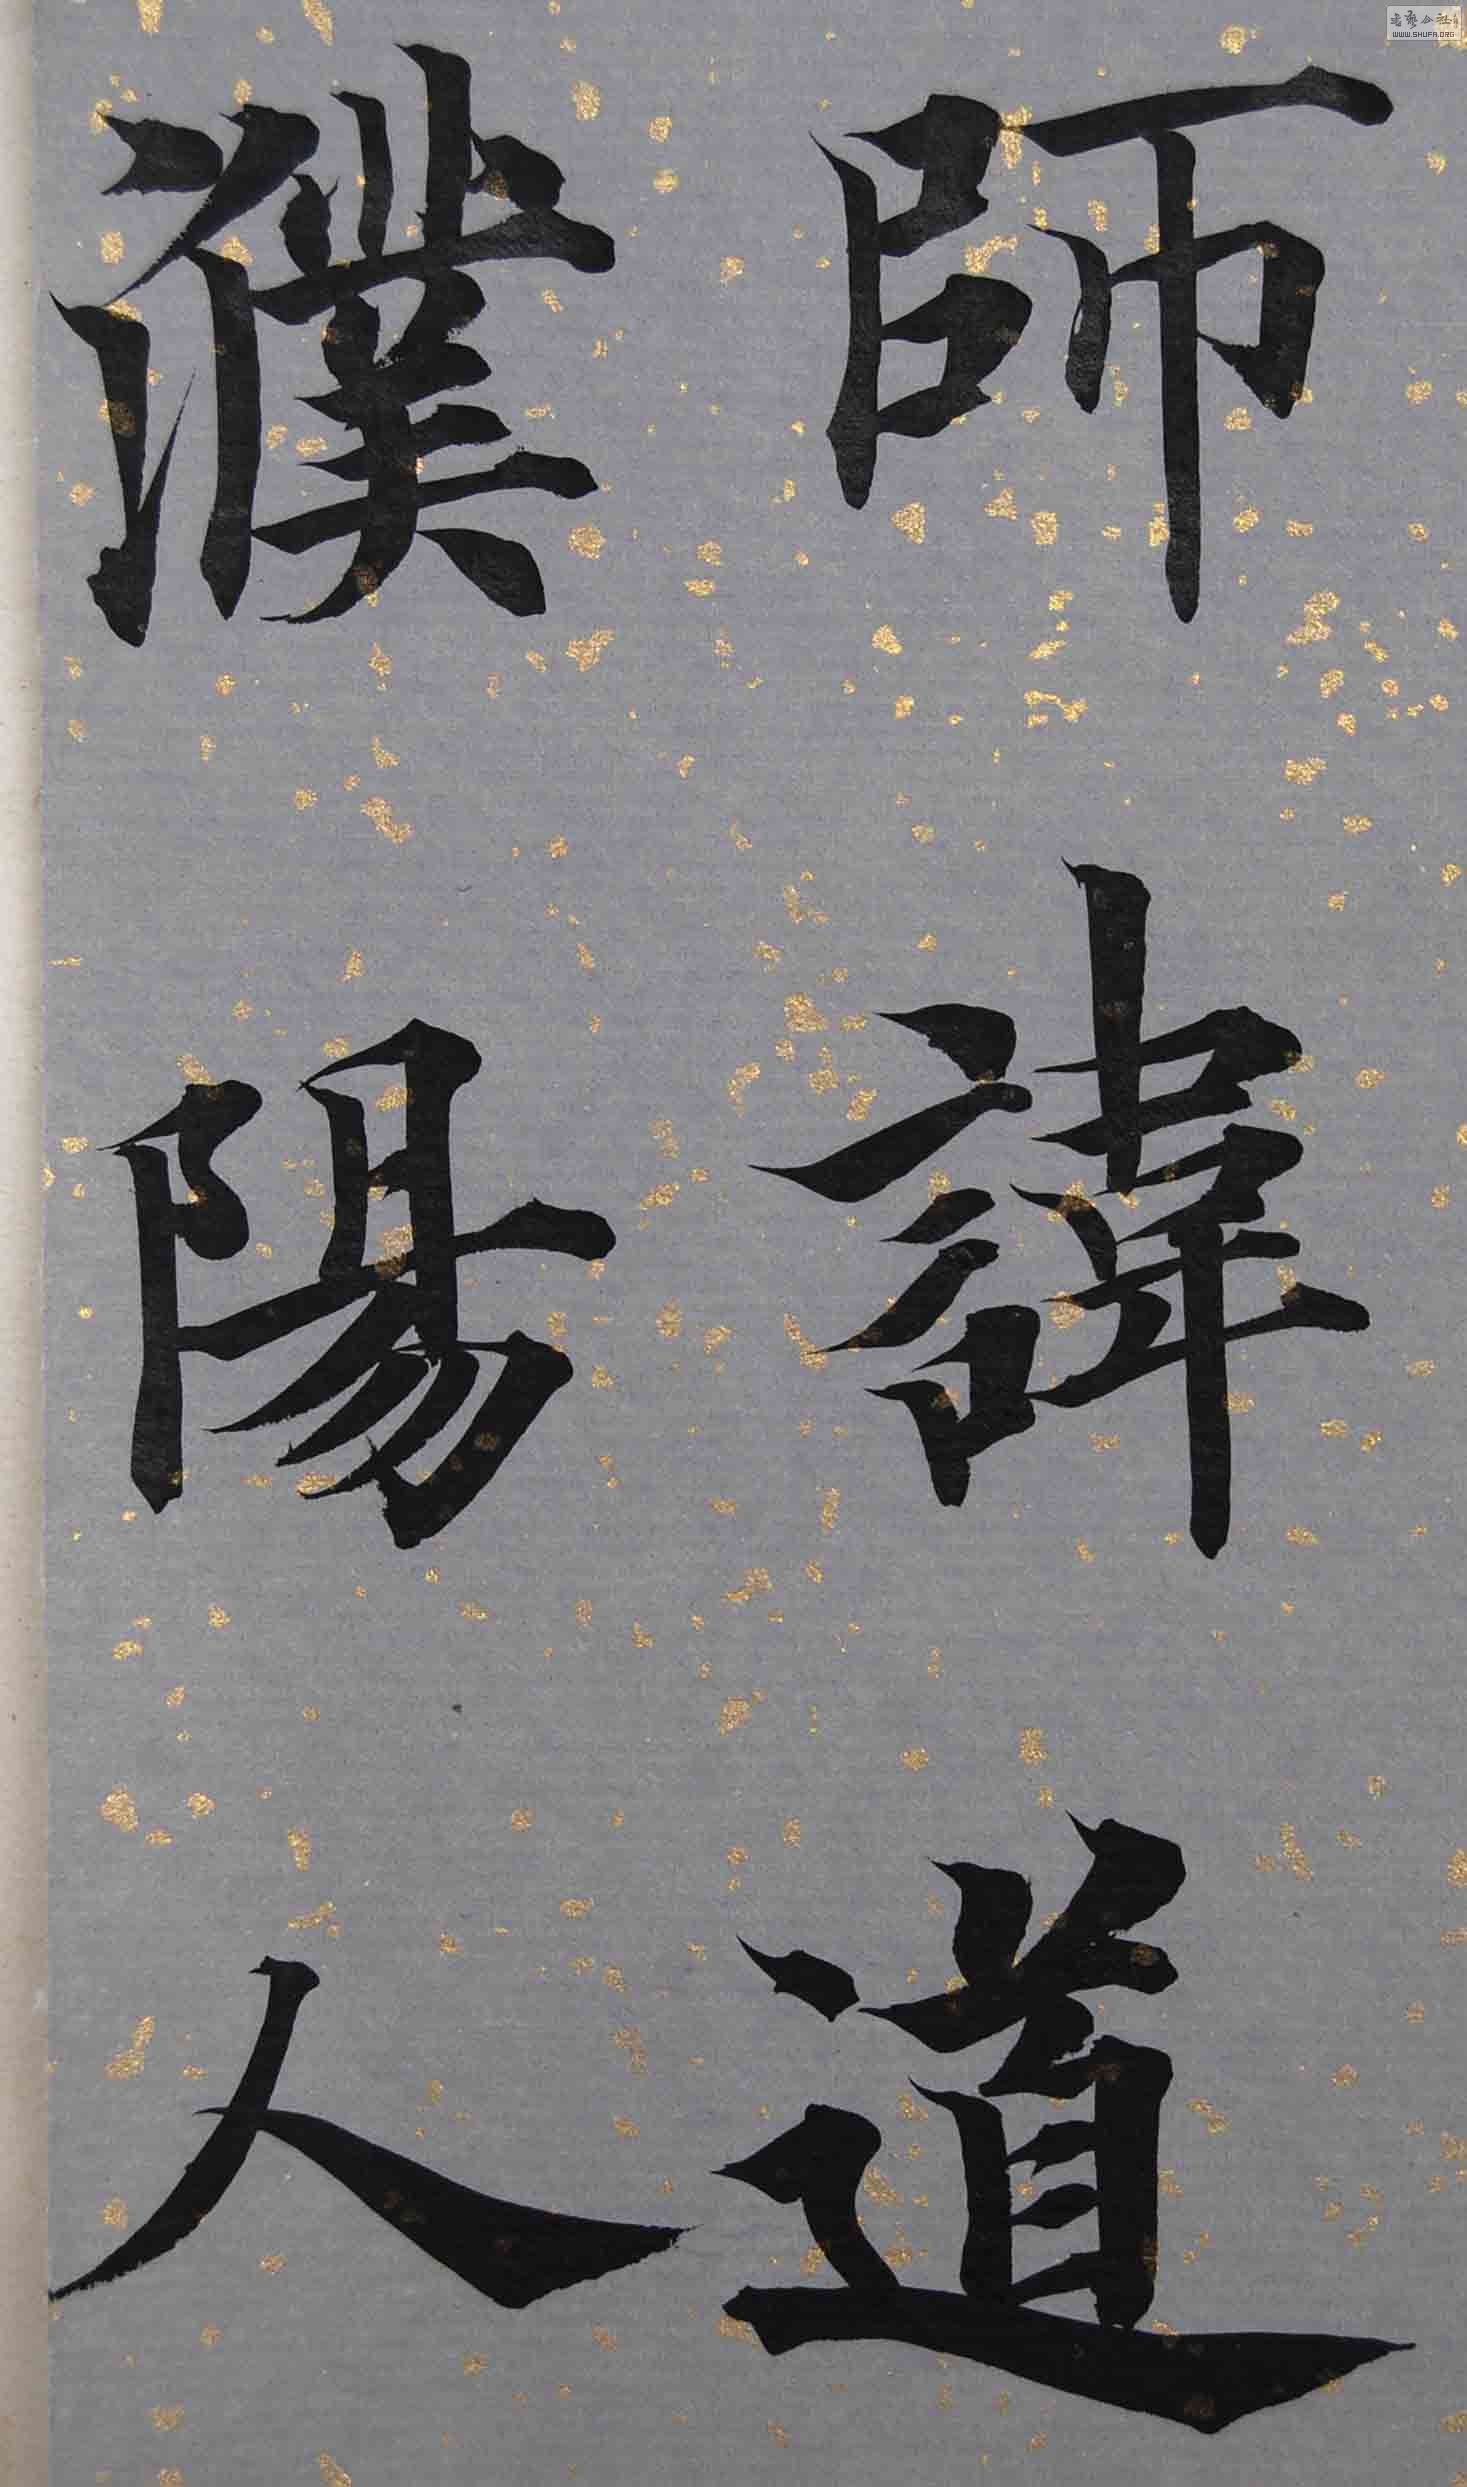 師諱道
濮陽人
WWW.SHUFA.ORG